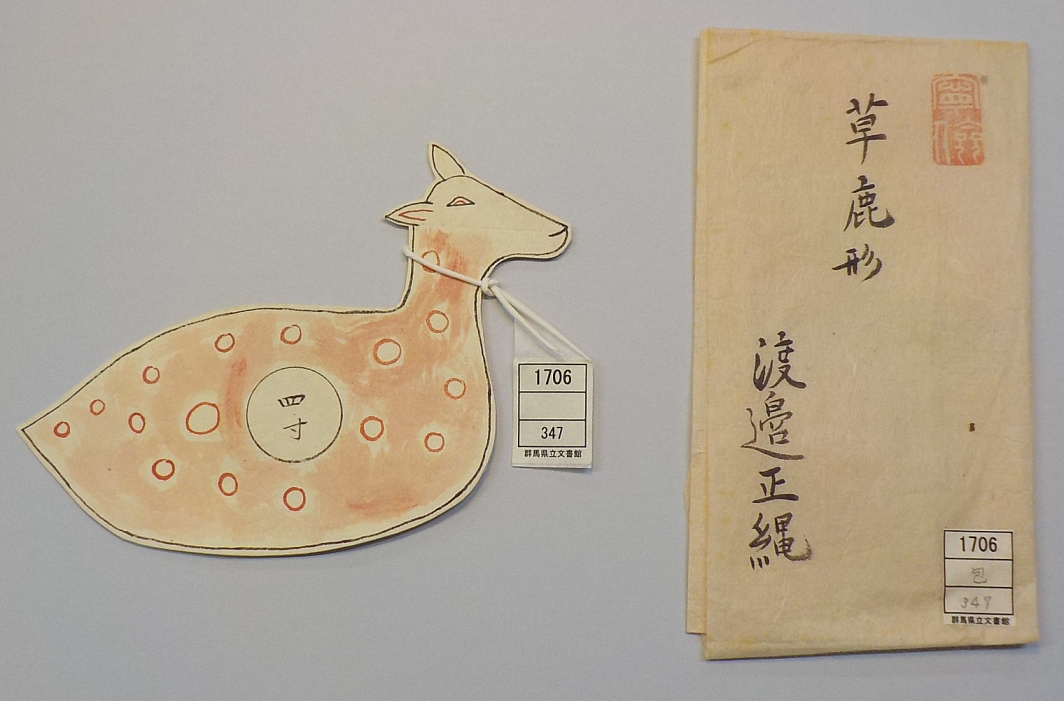 草鹿形
渡邉正縄
四寸
1706
347
群馬県立文書館
1706
包
347
群馬県立文書館